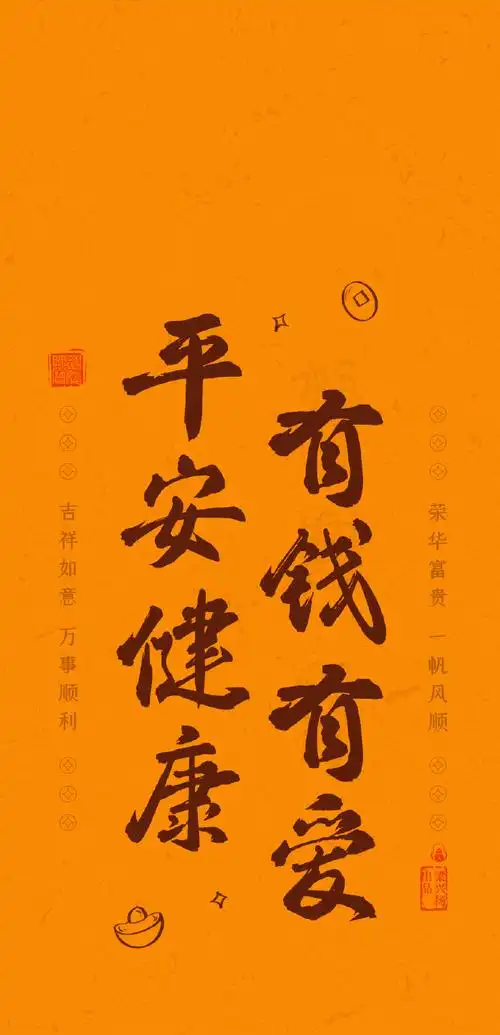 荣华富贵 一帆风顺
有钱有爱
平安健康
吉祥如意 万事顺利
梁兴扬
出品